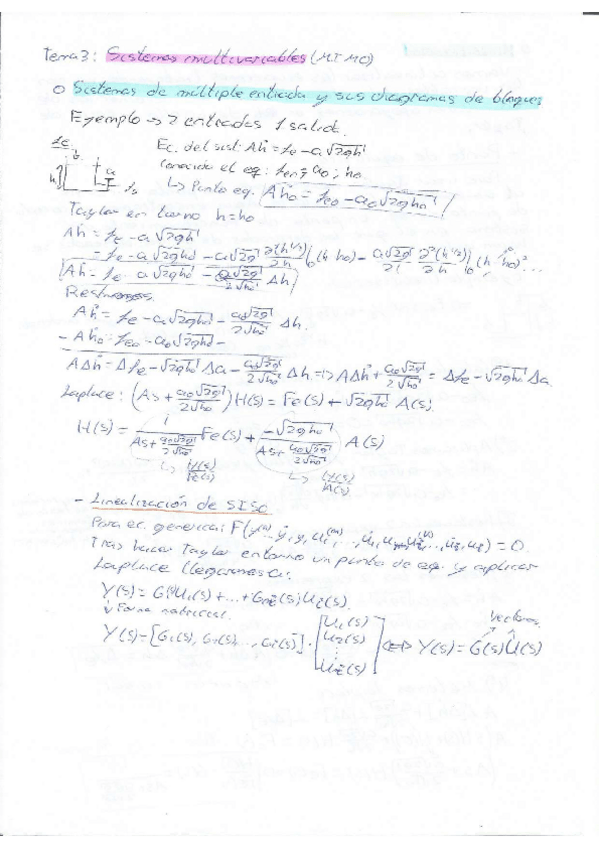 Tema 3: Sistemas multivariables (MIMO)
o Sistemas de múltiple entrada y sus diagramas de bloques
Ejemplo → 2 entradas 1 salida.
fe
h
a
fs
Ec. del sist: Aḣ = fe - a√2gh
Conocido el eq: fe0; a0; h0
↳ Punto eq. Aḣ0 = fe0 - a0√2gh0
Taylor en torno h=h0
Aḣ = fe - a√2gh
= fe - a√2gh0 - a√2g ∂(h^1/2)/∂h |0 (h-h0) - a√2g/2! ∂²(h^1/2)/∂h |0 (h-h0)²...
Aḣ = fe - a√2gh0 - a√2g/2√h0 Δh
Restamos.
Aḣ = fe - a√2gh0 - a0√2g/2√h0 Δh.
- Aḣ0 = fe0 - a0√2gh0 -
AΔḣ = Δfe - √2gh0 Δa - a0√2g/2√h0 Δh. => AΔḣ + a0√2g/2√h0 = Δfe - √2gh0 Δa.
Laplace: (As + a0√2g/2√h0) H(s) = Fe(s) + √2gh0 A(s).
H(s) = 1/(As + a0√2g/2√h0) Fe(s) + -√2gh0/(As + a0√2g/2√h0) A(s)
↳ H(s)/Fe(s) ↳ H(s)/A(s)
- Linealización de SISO
Para ec. generica: F(y^(n)...ẏ, y, u1^(m), ..., u̇1, u1, ..., u̇z, uz) = 0.
Tras hacer Taylor entorno un punto de eq. y aplicar
Laplace llegamos a:
Y(s) = G1(s)U1(s) + ... + Gz(s)Uz(s).
↓ Forma matricial.
Y(s) = [G1(s), G2(s), ..., Gz(s)] · [U1(s) U2(s) ⋮ Uz(s)] <=> Y(s) = G(s)U(s)
vectores.